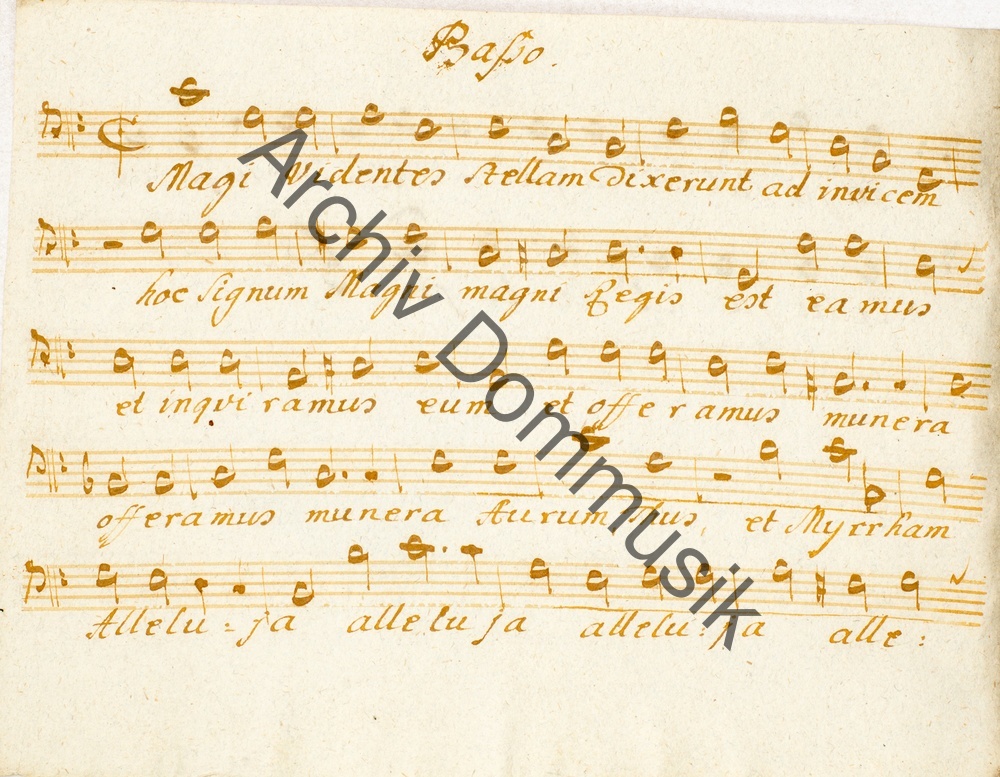 Baſso.
Magi Videntes stellam Dixerunt ad invicem
hoc signum Magni magni Regis est eamus
et inqviramus eum et offeramus munera
offeramus munera Aurum thus, et Myrrham
Allelu=ja alleluja allelu:ja alle:
Archiv Dommusik